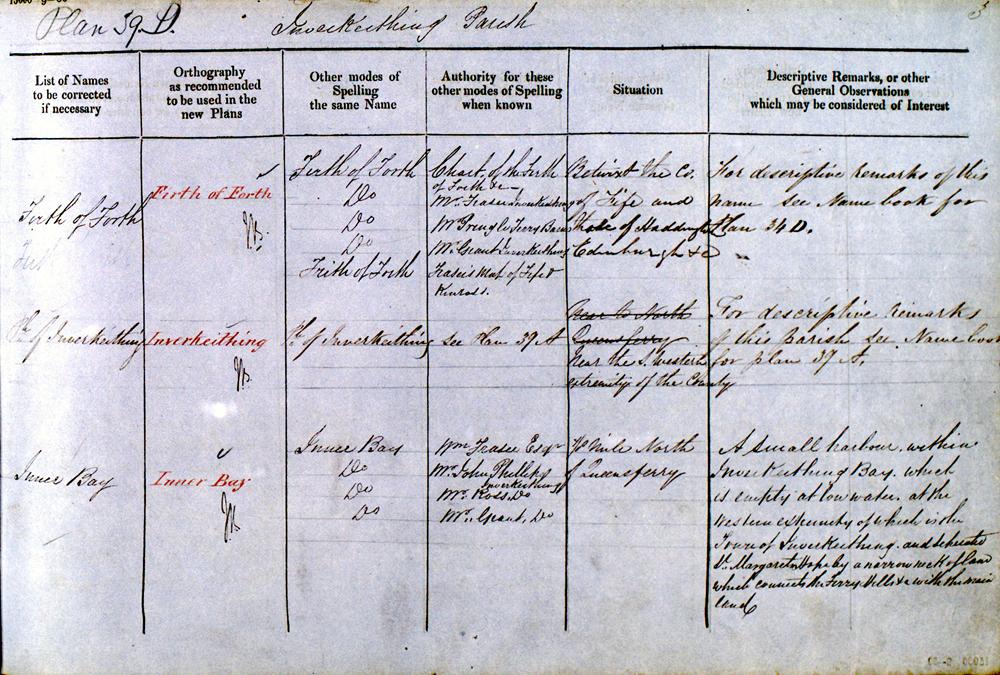 Plan 39.D. Inverkeithing Parish
3
List of Names
to be corrected
if necessary
Orthography
as recommended
to be used in the
new Plans
Other modes of
Spelling
the same Name
Authority for these
other modes of Spelling
when known
Situation
Descriptive Remarks, or other
General Observations
which may be considered of Interest
Firth of Forth
Firth of Forth
Firth of Forth
Do
Do
Do
Frith of Forth
Chart of the Firth
of Forth &c
Mr. Fraser Inverkeithing
Mr Pringle Ferry Barns
Mr. Grant Inverkeithing
Fraser's Map of Fife &
Kinross.
Betwixt the Co.
of Fife and
those of Haddington
Edinburgh &c
For descriptive remarks of this
name see Name book for
Plan 34 D.
Ph. of Inverkeithing
Inverkeithing
Ph. of Inverkeithing
see Plan 39 A
Near to North
Queensferry
Near the S. Western
extremity of the County
For descriptive Remarks
of this Parish see Name book
for plan 37 A.
Inner Bay
Inner Bay
Inner Bay
Do
Do
Do
Wm Fraser Esqr
Mr. John Phillips
Inverkeithing
Mr. Ross, Do
Mr. Grant, Do
Mile North
of Queensferry
A Small harbour within
Inverkeithing Bay. which
is empty at low water. at the
Western extremity of which is the
Town of Inverkeithing. and separated
St. Margarets Hope by a narrow neck of land
which connects the Ferry Hills &c with the main
land